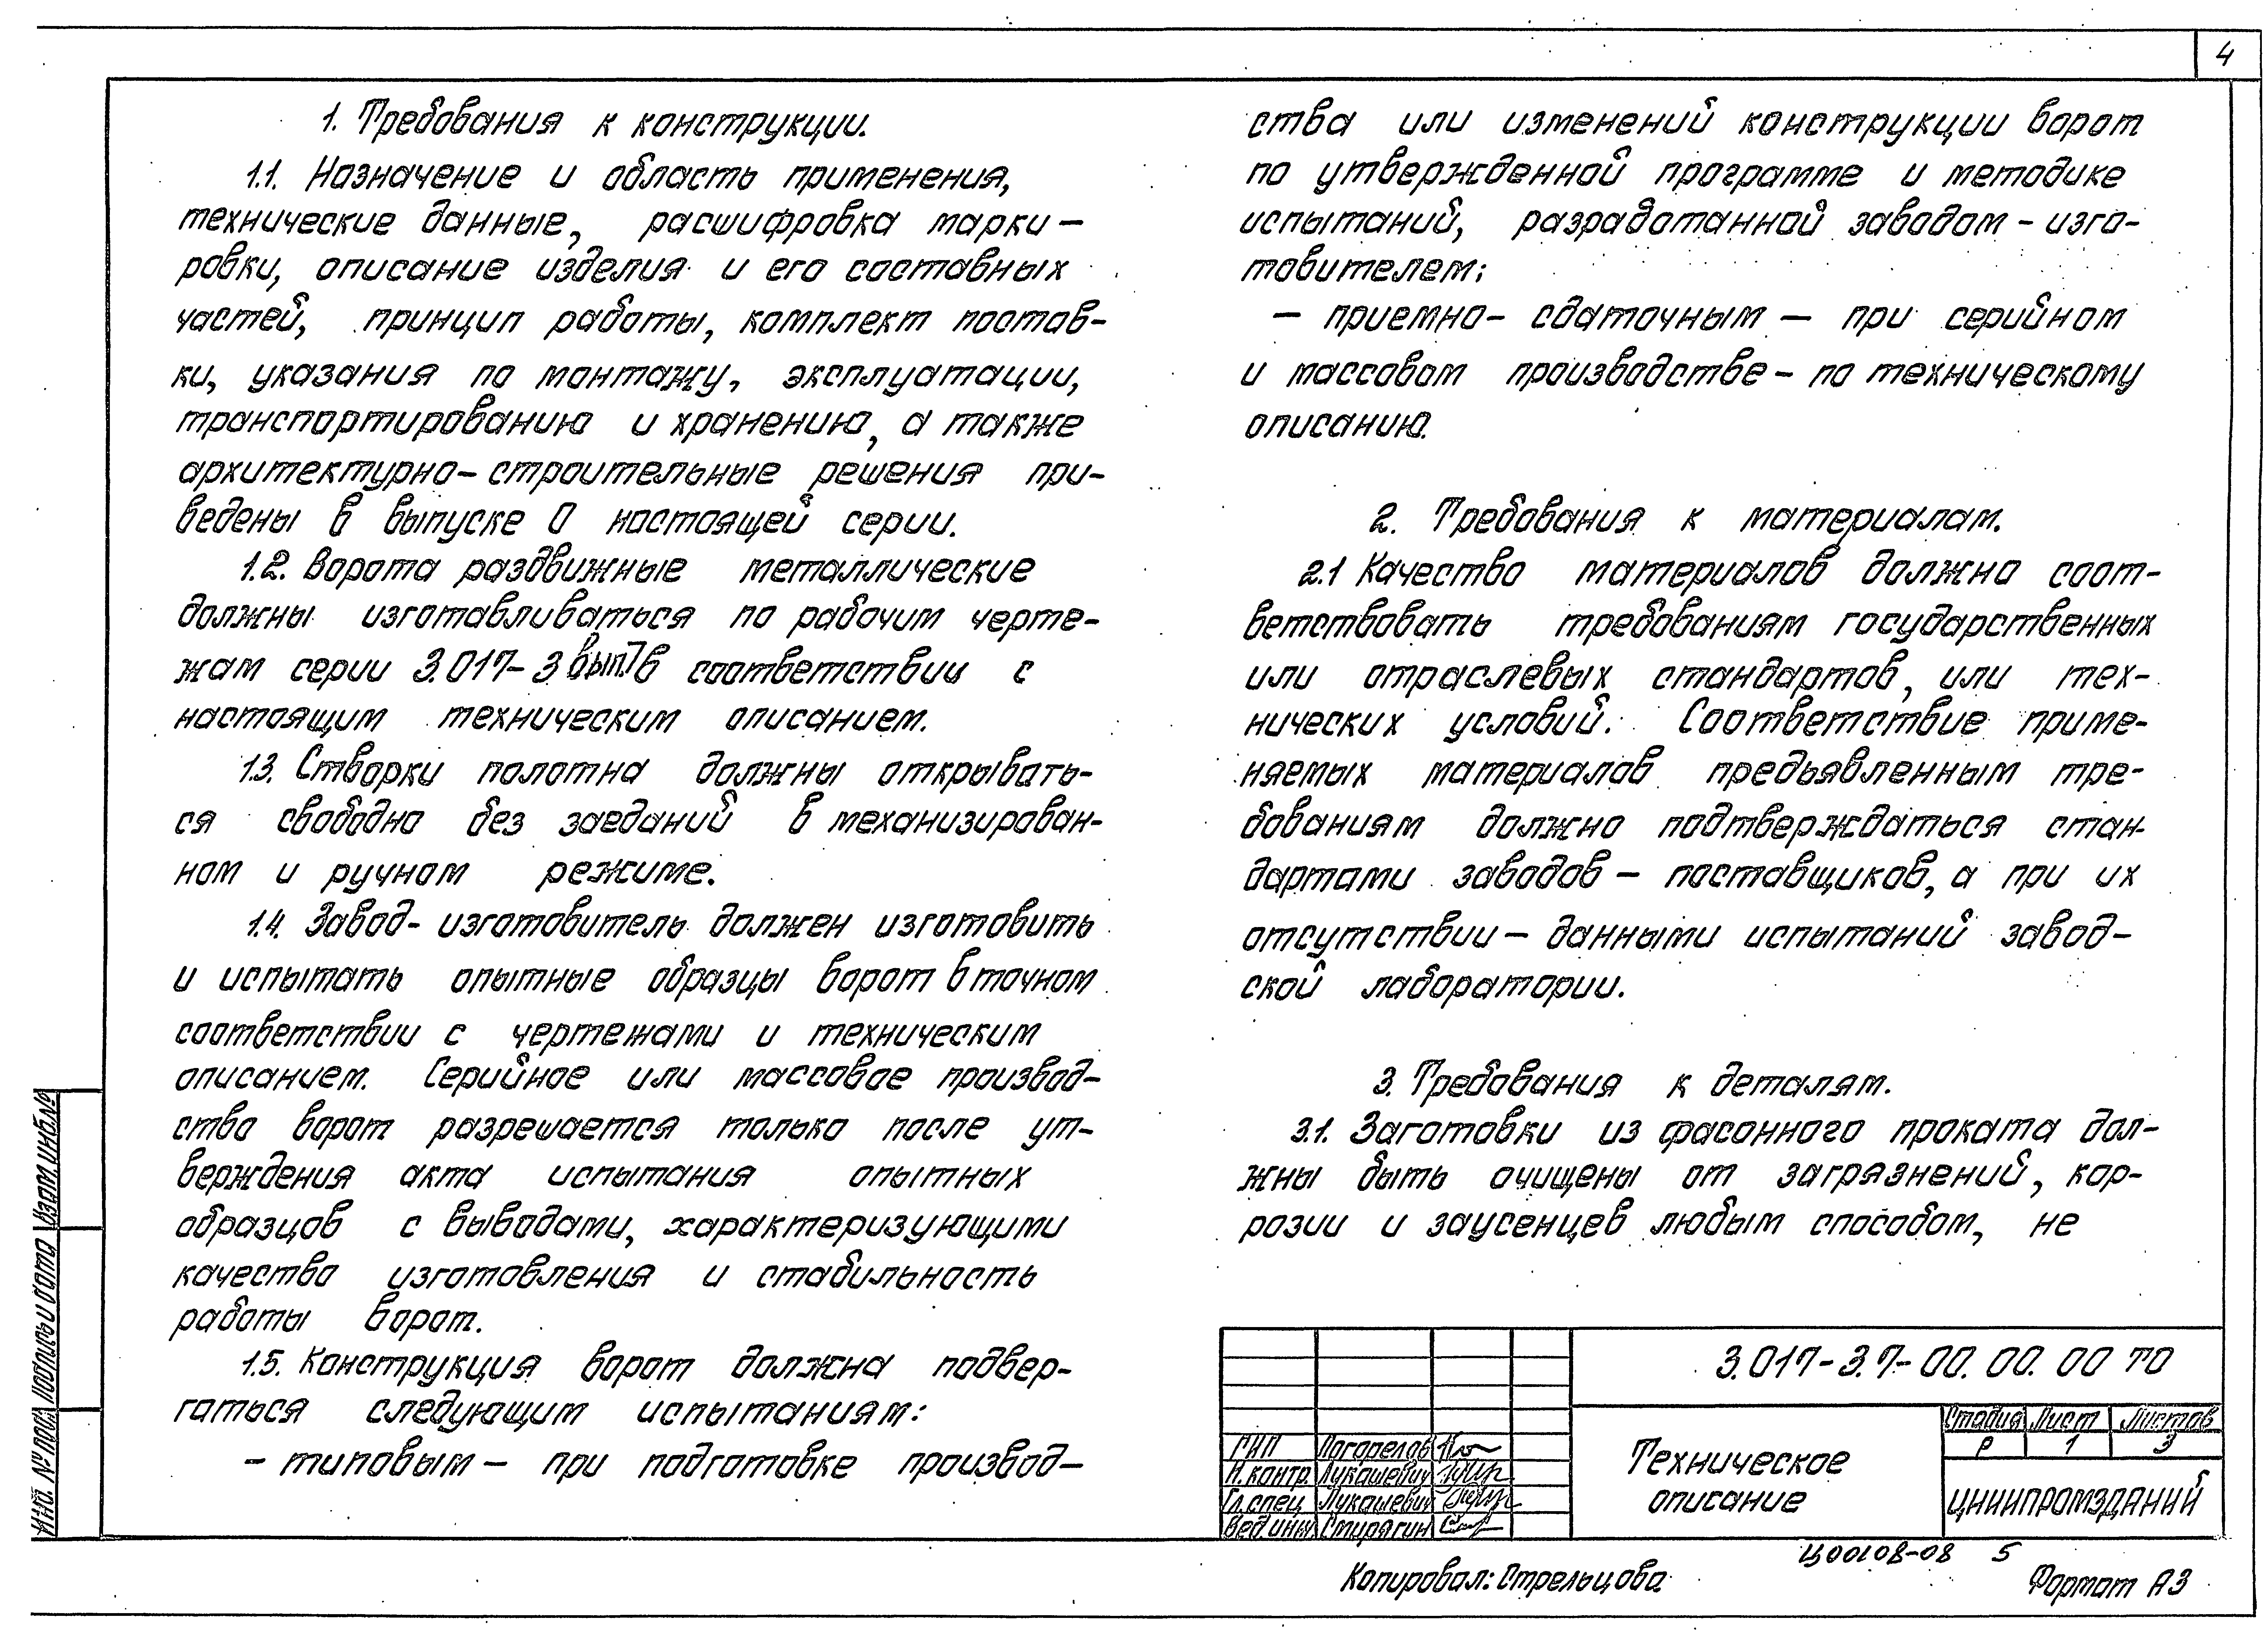 4
1. Требования к конструкции.
1.1. Назначение и область применения,
технические данные, расшифровка марки-
ровки, описание изделия и его составных
частей, принцип работы, комплект постав-
ки, указания по монтажу, эксплуатации,
транспортированию и хранению, а также
архитектурно-строительные решения при-
ведены в выпуске 0 настоящей серии.
1.2. Ворота раздвижные металлические
должны изготавливаться по рабочим черте-
жам серии 3.017-3 вып.7 в соответствии с
настоящим техническим описанием.
1.3. Створки полотна должны открывать-
ся свободно без заеданий в механизирован-
ном и ручном режиме.
1.4. Завод-изготовитель должен изготовить
и испытать опытные образцы ворот в точном
соответствии с чертежами и техническим
описанием. Серийное или массовое производ-
ство ворот разрешается только после ут-
верждения акта испытания опытных
образцов с выводами, характеризующими
качество изготовления и стабильность
работы ворот.
1.5. Конструкция ворот должна подвер-
гаться следующим испытаниям:
- типовым - при подготовке производ-
ства или изменений конструкции ворот
по утвержденной программе и методике
испытаний, разработанной заводом-изго-
товителем;
- приемно-сдаточным - при серийном
и массовом производстве - по техническому
описанию.
2. Требования к материалам.
2.1 Качество материалов должно соот-
ветствовать требованиям государственных
или отраслевых стандартов, или тех-
нических условий. Соответствие приме-
няемых материалов предьявленным тре-
бованиям должно подтверждаться стан-
дартами заводов-поставщиков, а при их
отсутствии - данными испытаний завод-
ской лаборатории.
3. Требования к деталям.
3.1. Заготовки из фасонного проката дол-
жны быть очищены от загрязнений, кор-
розии и заусенцев любым способом, не
3.017-3.7-00.00.00 ТО
Техническое
описание
Стадия Лист Листов
Р 1 3
ЦНИИПРОМЗДАНИЙ
ГИП Погорелов
Н.контр. Лукашевич
Гл.спец Лукашевич
Вед.инж Стирягин
Инв. № подл. Подпись и дата Взам.инв.№
Ц00108-08 5
Копировал: Стрельцова
Формат А3